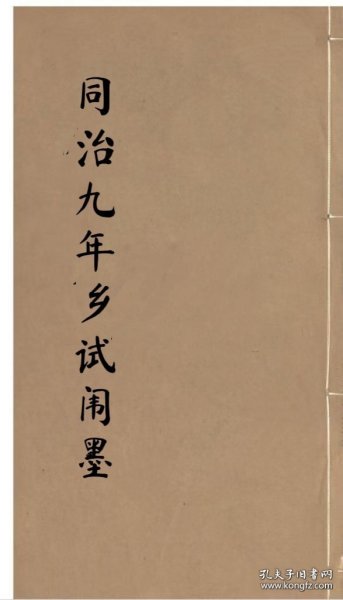 同治九年乡试闱墨
孔夫子旧书网
www.kongfz.com